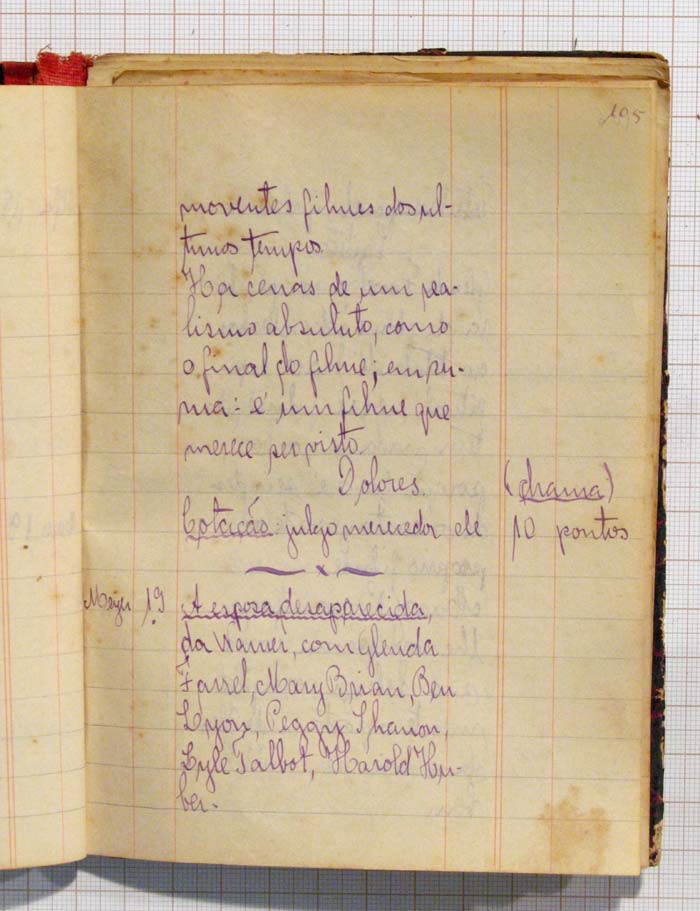 105
moventes filmes dos ul-
timos tempos.
Ha cenas de um rea-
lismo absoluto, como
o final do filme; em su-
ma: é um filme que
merece ser visto.
Dolores. (drama)
Cotação: julgo merecedor de 10 pontos
Meyer 19 A esposa desaparecida,
da Warner, com Glenda
Farrel, Mary Brian, Ben
Lyon, Peggy Shanon,
Lyle Talbot, Harold Hu-
ber.